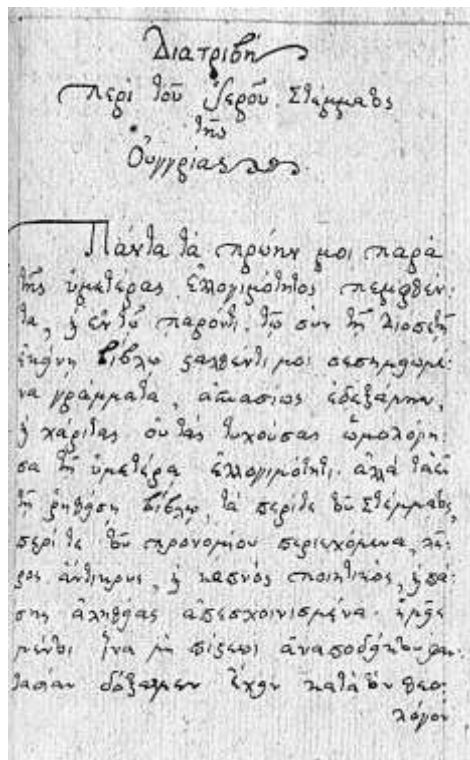 Διατριβὴ
Περὶ τοῦ Ἱεροῦ Στέμματος
τῆς
Οὑγγρίας
Πάντα τὰ πρώην μοι παρὰ
τῆς ὑμετέρας ἐλλογιμότητος πεμφθέν-
τα, καὶ ἐν τῷ παρόντι τῷ σὺν τῇ
βίβλῳ σταλθέντι μοι σεσημειωμέ-
να γράμματα, ἀσπασίως ἐδεξάμην,
καὶ χάριτας οὐ τὰς τυχούσας ὡμολόγη-
σα τῇ ὑμετέρᾳ ἐλλογιμότητι. ἀλλὰ τὰ ἐν
τῇ ῥηθείσῃ βίβλῳ, τὰ περί τε τοῦ Στέμματος,
περί τε τοῦ προνομίου περιεχόμενα, λῆ-
ρος ἄντικρυς, καὶ καπνὸς ποιητικὸς, καὶ πά-
σης ἀληθείας ἀπεσχοινισμένα.
μέντοι ἵνα μὴ πίστεως ἀναποδείκτου φαν-
τασίαν δόξωμεν ἔχειν κατὰ τὸν θεο-
λόγον